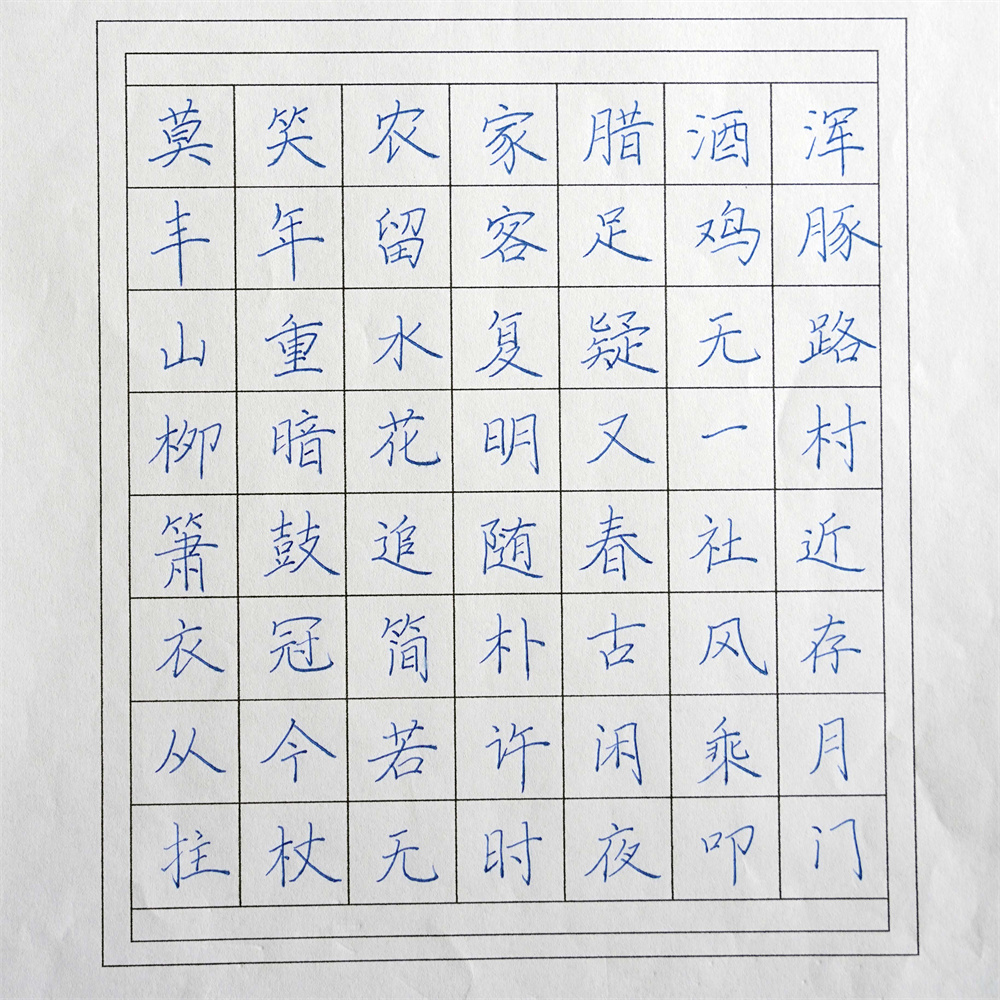 莫笑农家腊酒浑
丰年留客足鸡豚
山重水复疑无路
柳暗花明又一村
箫鼓追随春社近
衣冠简朴古风存
从今若许闲乘月
拄杖无时夜叩门